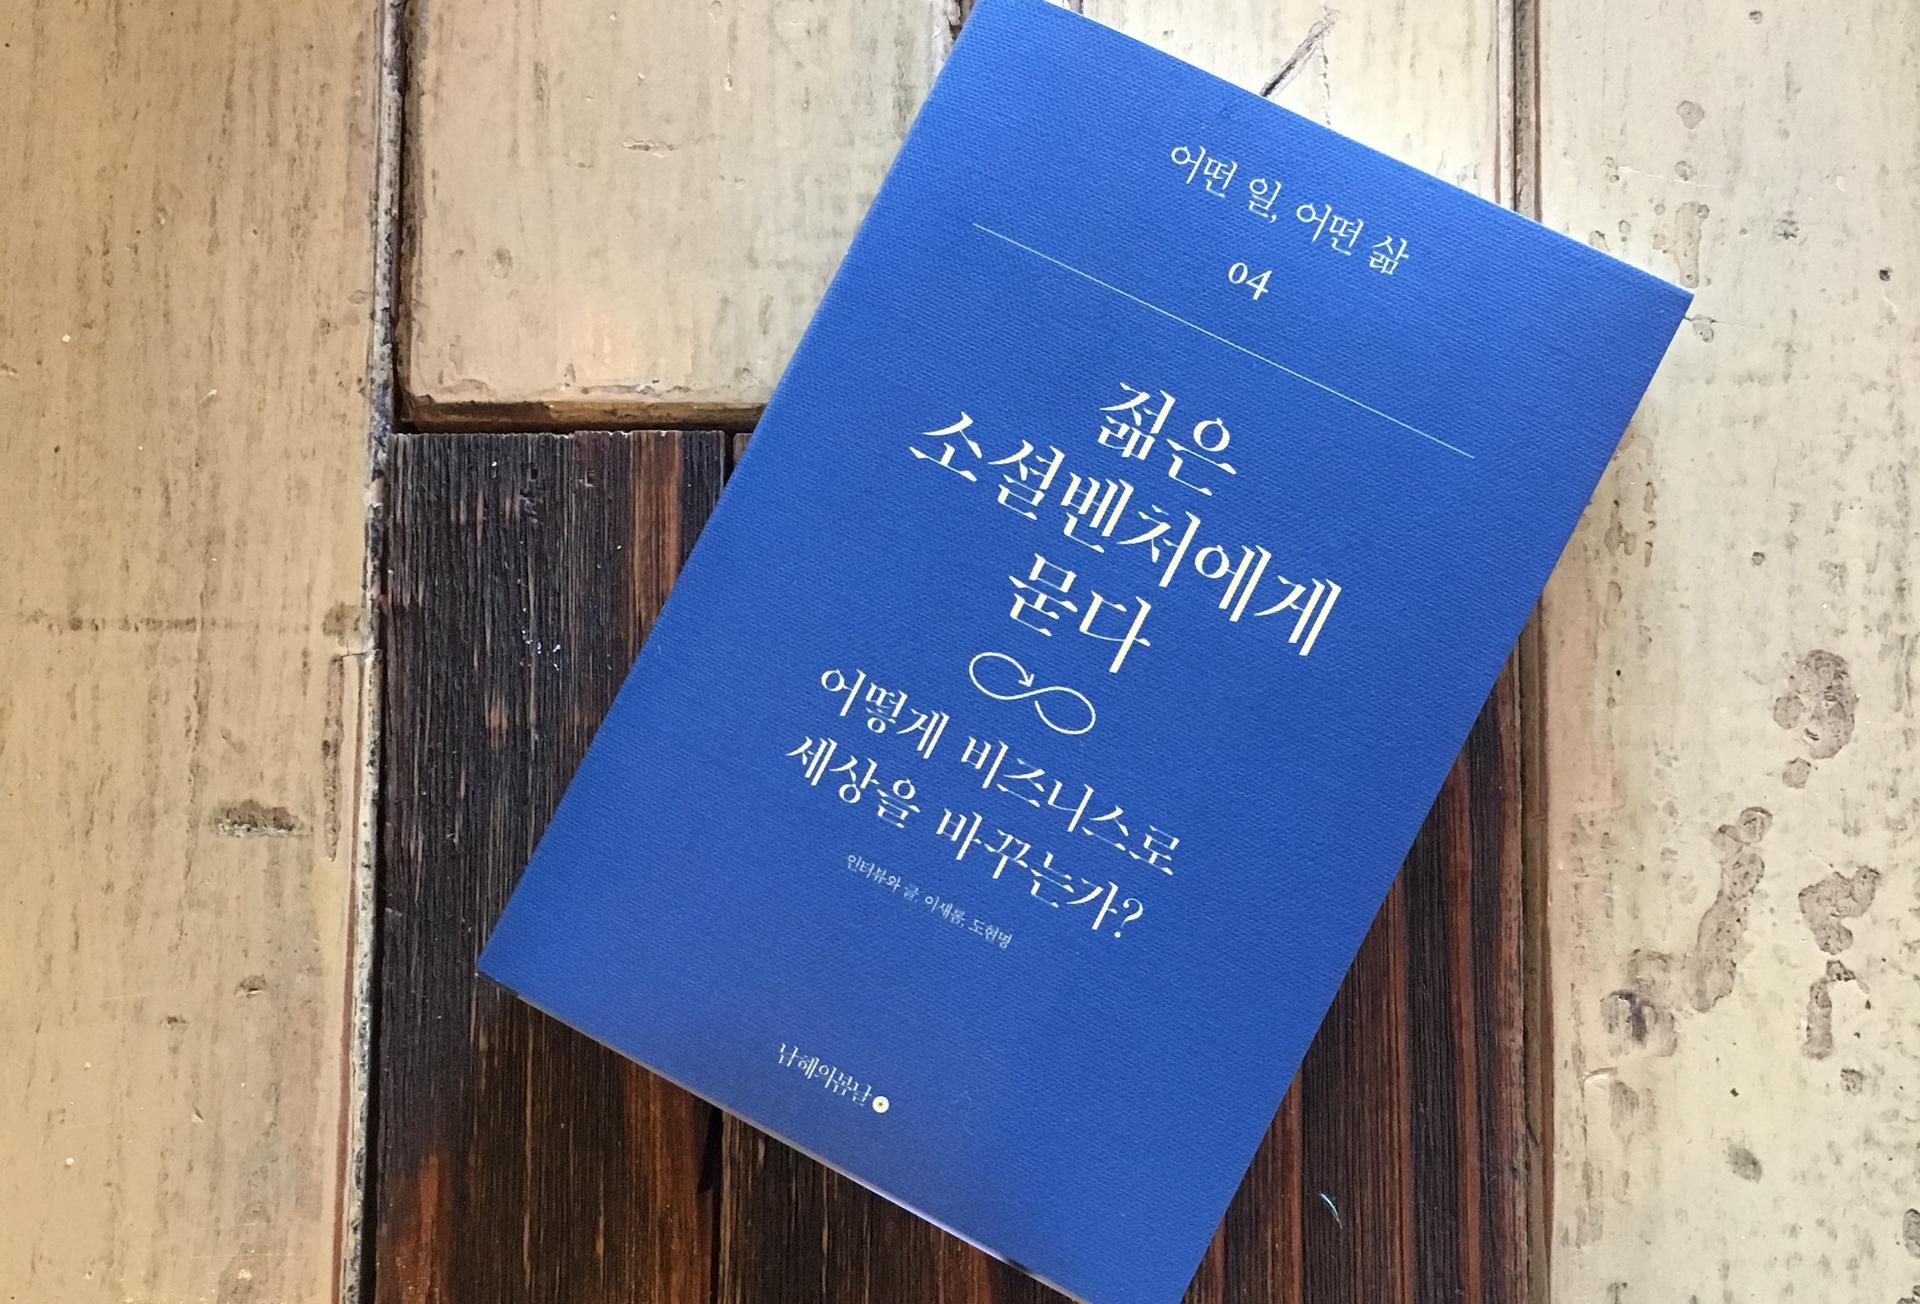 어떤 일, 어떤 삶
04
젊은
소셜벤처에게
묻다
어떻게 비즈니스로
세상을 바꾸는가?
인터뷰와 글, 이새롬, 도현명
남해의봄날